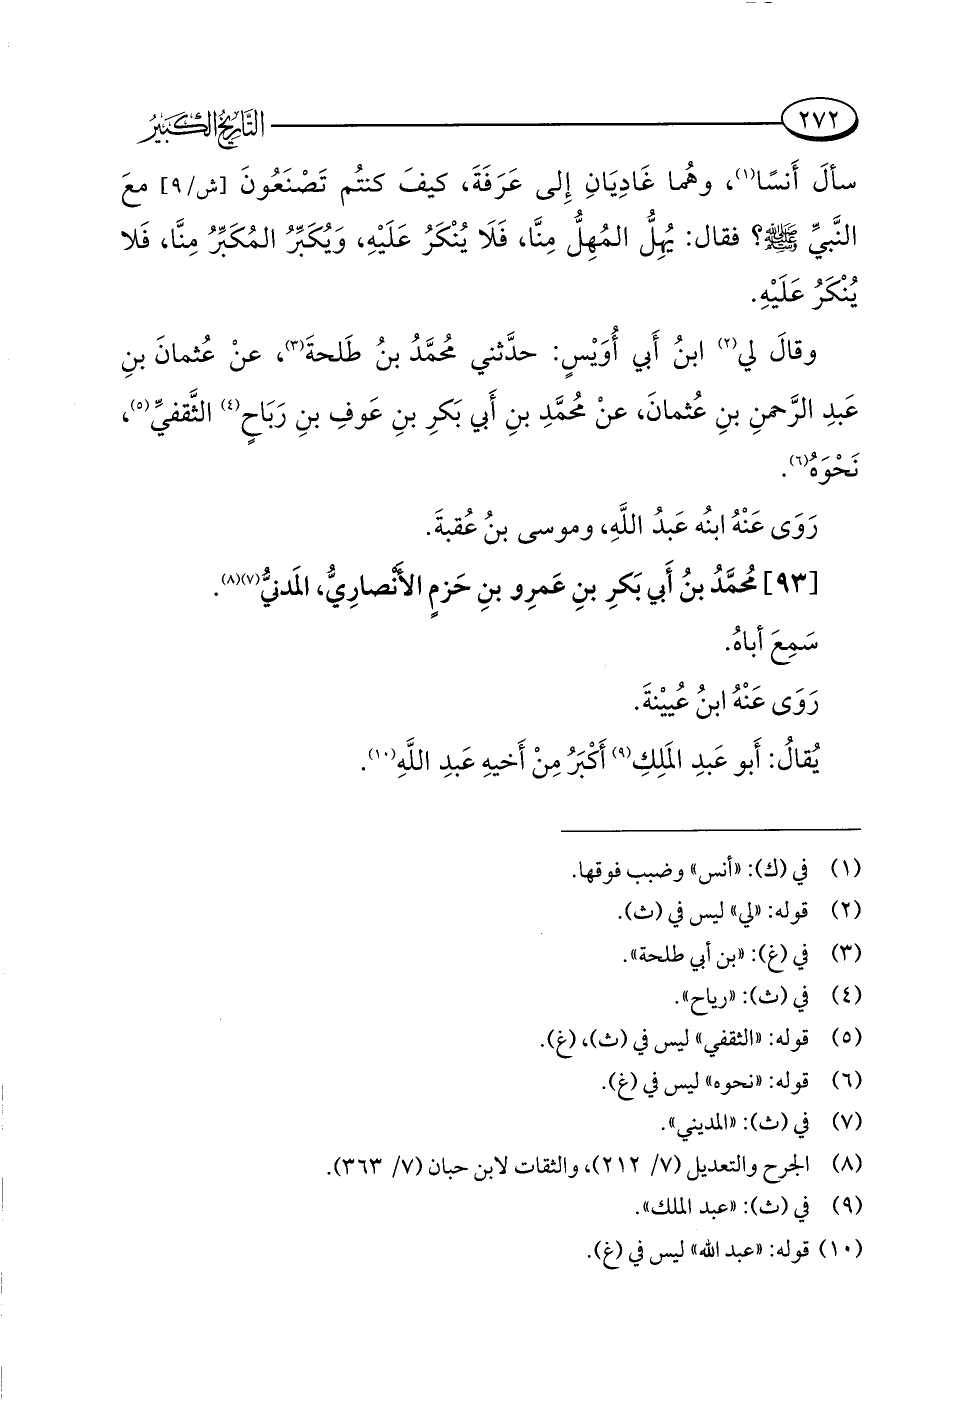 ٢٧٢ التاريخ الكبير
سألَ أَنسًا(١)، وهُما غَادِيَانِ إِلى عَرَفَةَ، كيفَ كنتُم تَصْنَعُونَ [ش/٩] معَ
النَّبيِّ ﷺ؟ فقال: يُهِلُّ المُهِلُّ مِنَّا، فَلَا يُنْكَرُ عَلَيْهِ، وَيُكَبِّرُ المُكَبِّرُ مِنَّا، فَلا
يُنْكَرُ عَلَيْهِ.
وقالَ لي(٢) ابنُ أَبي أُوَيْسٍ: حدَّثني مُحمَّدُ بنُ طَلحةَ(٣)، عنْ عُثمانَ بنِ
عَبدِ الرَّحمنِ بنِ عُثمانَ، عنْ مُحمَّدِ بنِ أَبي بَكرِ بنِ عَوفِ بنِ رَبَاحٍ(٤) الثَّقفيِّ(٥)،
نَحْوَهُ(٦).
رَوَى عَنْهُ ابنُه عَبدُ اللَّهِ، وموسى بنُ عُقبةَ.
[٩٣] مُحمَّدُ بنُ أَبي بَكرِ بنِ عَمرِو بنِ حَزمٍ الأَنْصارِيُّ، المَدنيُّ(٧)(٨).
سَمِعَ أَباهُ.
رَوَى عَنْهُ ابنُ عُيينْةَ.
يُقالُ: أَبو عَبدِ المَلِكِ(٩) أَكْبَرُ مِنْ أَخيهِ عَبدِ اللَّهِ(١٠).
(١) في (ك): «أنس» وضبب فوقها.
(٢) قوله: «لي» ليس في (ث).
(٣) في (غ): «بن أبي طلحة».
(٤) في (ث): «رياح».
(٥) قوله: «الثقفي» ليس في (ث)، (غ).
(٦) قوله: «نحوه» ليس في (غ).
(٧) في (ث): «المديني».
(٨) الجرح والتعديل (٧/ ٢١٢)، والثقات لابن حبان (٧/ ٣٦٣).
(٩) في (ث): «عبد الملك».
(١٠) قوله: «عبد الله» ليس في (غ).